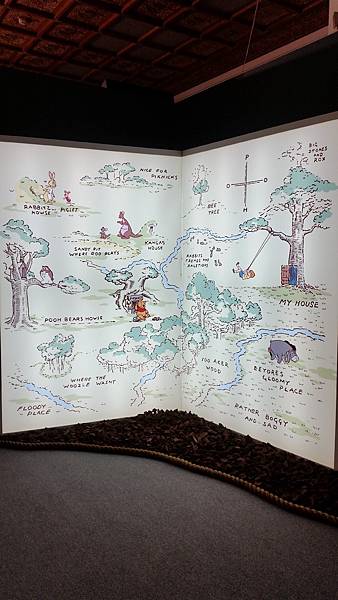 NICE FOR
PIKNICKS
BIG
STONES
AND
ROX
RABBITS
HOUSE
PIGLET
BEE
TREE
P
O
O
H
SANDY PIT
WHERE ROO PLAYS
KANGAS
HOUSE
RABBITS
FRENDS AND
RALETIONS
MY HOUSE
POOH BEARS HOWSE
100 AKER
WOOD
EEYORES
GLOOMY
PLACE
WHERE THE
WOOZLE WASNT
FLOODY
PLACE
RATHER BOGGY
AND SAD